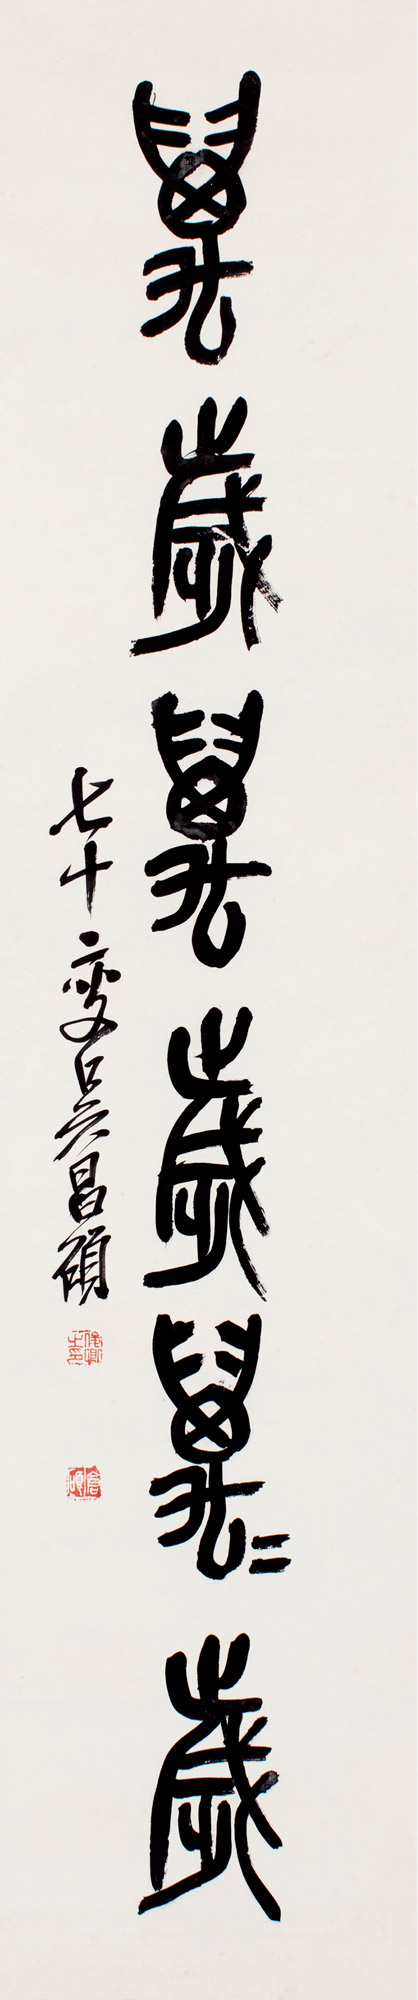 萬歲萬歲萬〻歲
七十二叟吳昌碩
俊卿之印
倉碩